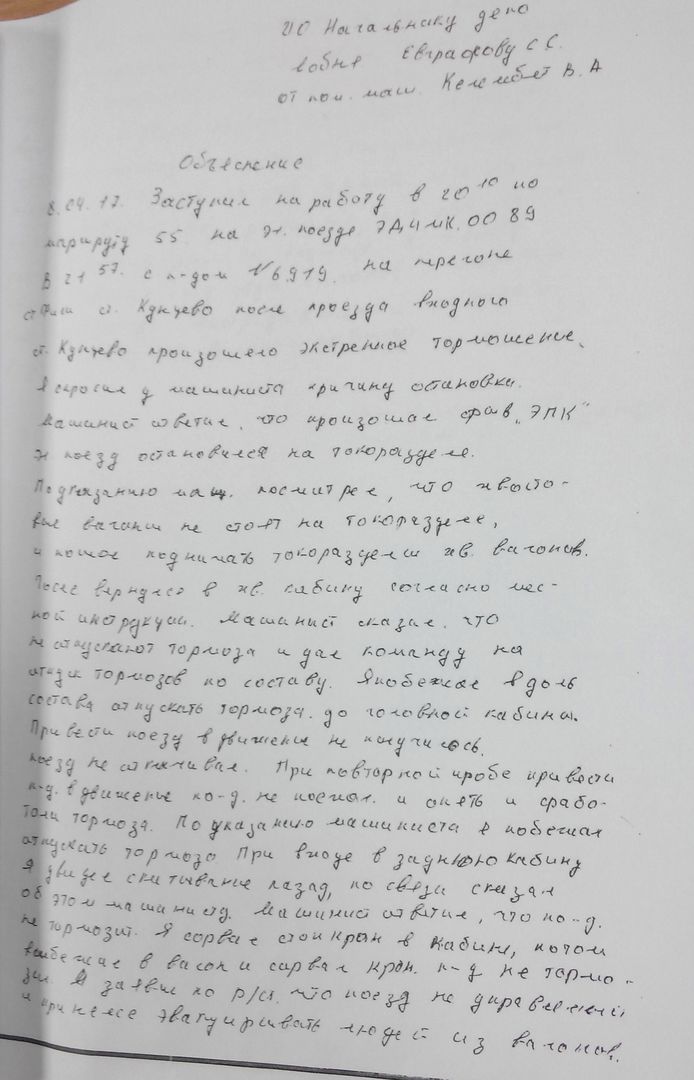 ИО Начальнику депо
лобня Евграфову С С.
от пом. маш. Келембет В. А
Объяснение
8.04.17. Заступил на работу в 20 10 по
маршруту 55 на эл. поезде ЭД4МК. 0089
В 21 57. с п-дом №6919. на перегоне
ст Фили ст. Кунцево после проезда входного
ст. Кунцево произошело экстренное торможение.
Я спросил у машиниста причину остановки.
Машинист ответил, что произошел срыв "ЭПК"
эл поезд остановился на токоразделе.
По указанию маш. посмотрел, что хвосто-
вые вагоны не стоят на токоразделе,
и пошол поднимать токоразделы хв. вагонов.
После вернулся в хв. кабину согласно мес-
ной инструкции. Машинист сказал, что
не отпускают тормоза и дал команду на
отпуск тормозов по составу. Я побежал вдоль
состава отпускать тормоза. до головной кабины.
Привести поезд в движенье не получилось.
поезд не откачивал. При повторной пробе привести
п-д. в движенье по-д. не поехал. и опять и срабо-
тали тормоза. По указанию машиниста я побежал
отпускать тормоза При входе в заднюю кабину
Я увидел скатывание назад, по связи сказал
об этом машинисту. Машинист ответил, что по-д.
не тормозит. Я сорвал стоп кран в кабине, потом
выбежал в вагон и сорвал кран. п-д не тормо-
зил. Я заявил по р/ст. что поезд не управляемый
и принелсе эвакуиривать людей из вагонов.